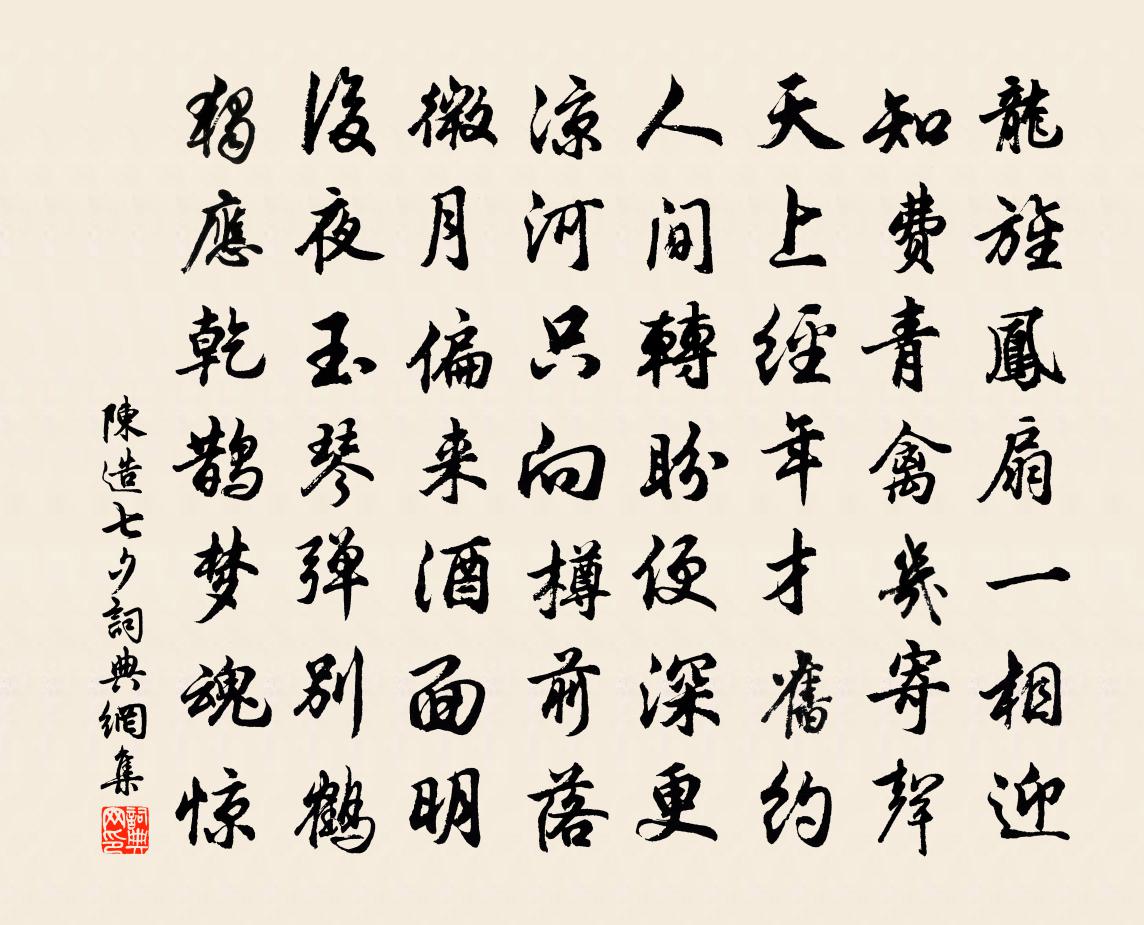 龍旌鳳扇一相迎
知費青禽幾寄聲
天上經年才舊約
人間轉盼便深更
涼河只向樽前落
微月偏来酒面明
後夜玉琴弹别鶴
獨應乾鵲梦魂惊
陳造七夕詞典網集
詞典网印